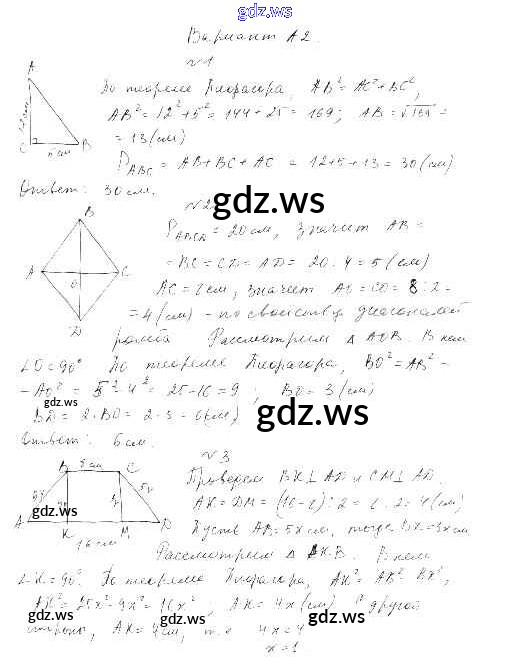 gdz.ws
Вариант А2.
№1
A
12см
C
5см
B
По теореме Пифагора, AB² = AC² + BC²,
AB² = 12² + 5² = 144 + 25 = 169; AB = √169 =
= 13 (см)
P_ABC = AB + BC + AC = 12 + 5 + 13 = 30 (см)
Ответ: 30 см.
№2
gdz.ws
B
A
O
C
D
P_ABCD = 20 см, значит AB =
= BC = CD = AD = 20 : 4 = 5 (см)
AC = 8 см, значит AO = CO = 8 : 2 =
= 4 (см) - по свойству диагоналей
ромба Рассмотрим Δ AOB. В нем
∠O = 90° По теореме Пифагора, BO² = AB² -
- AO² = 5² - 4² = 25 - 16 = 9; BO = 3 (см)
BD = 2 · BO = 2 · 3 = 6 (см)
gdz.ws
Ответ: 6 см.
№3
B
8 см
C
5x
A
K
M
D
16 см
gdz.ws
Проведем BK ⊥ AD и CM ⊥ AD.
AK = DM = (16 - 8) : 2 = 8 : 2 = 4 (см)
Пусть AB = 5x см, тогда BK = 3x см
gdz.ws
Рассмотрим Δ AKB. В нем
∠K = 90°. По теореме Пифагора, AK² = AB² - BK²,
AK² = 25x² - 9x² = 16x², AK = 4x (см) С другой
стороны, AK = 4 см, т.е. 4x = 4
gdz.ws
gdz.ws
x = 1